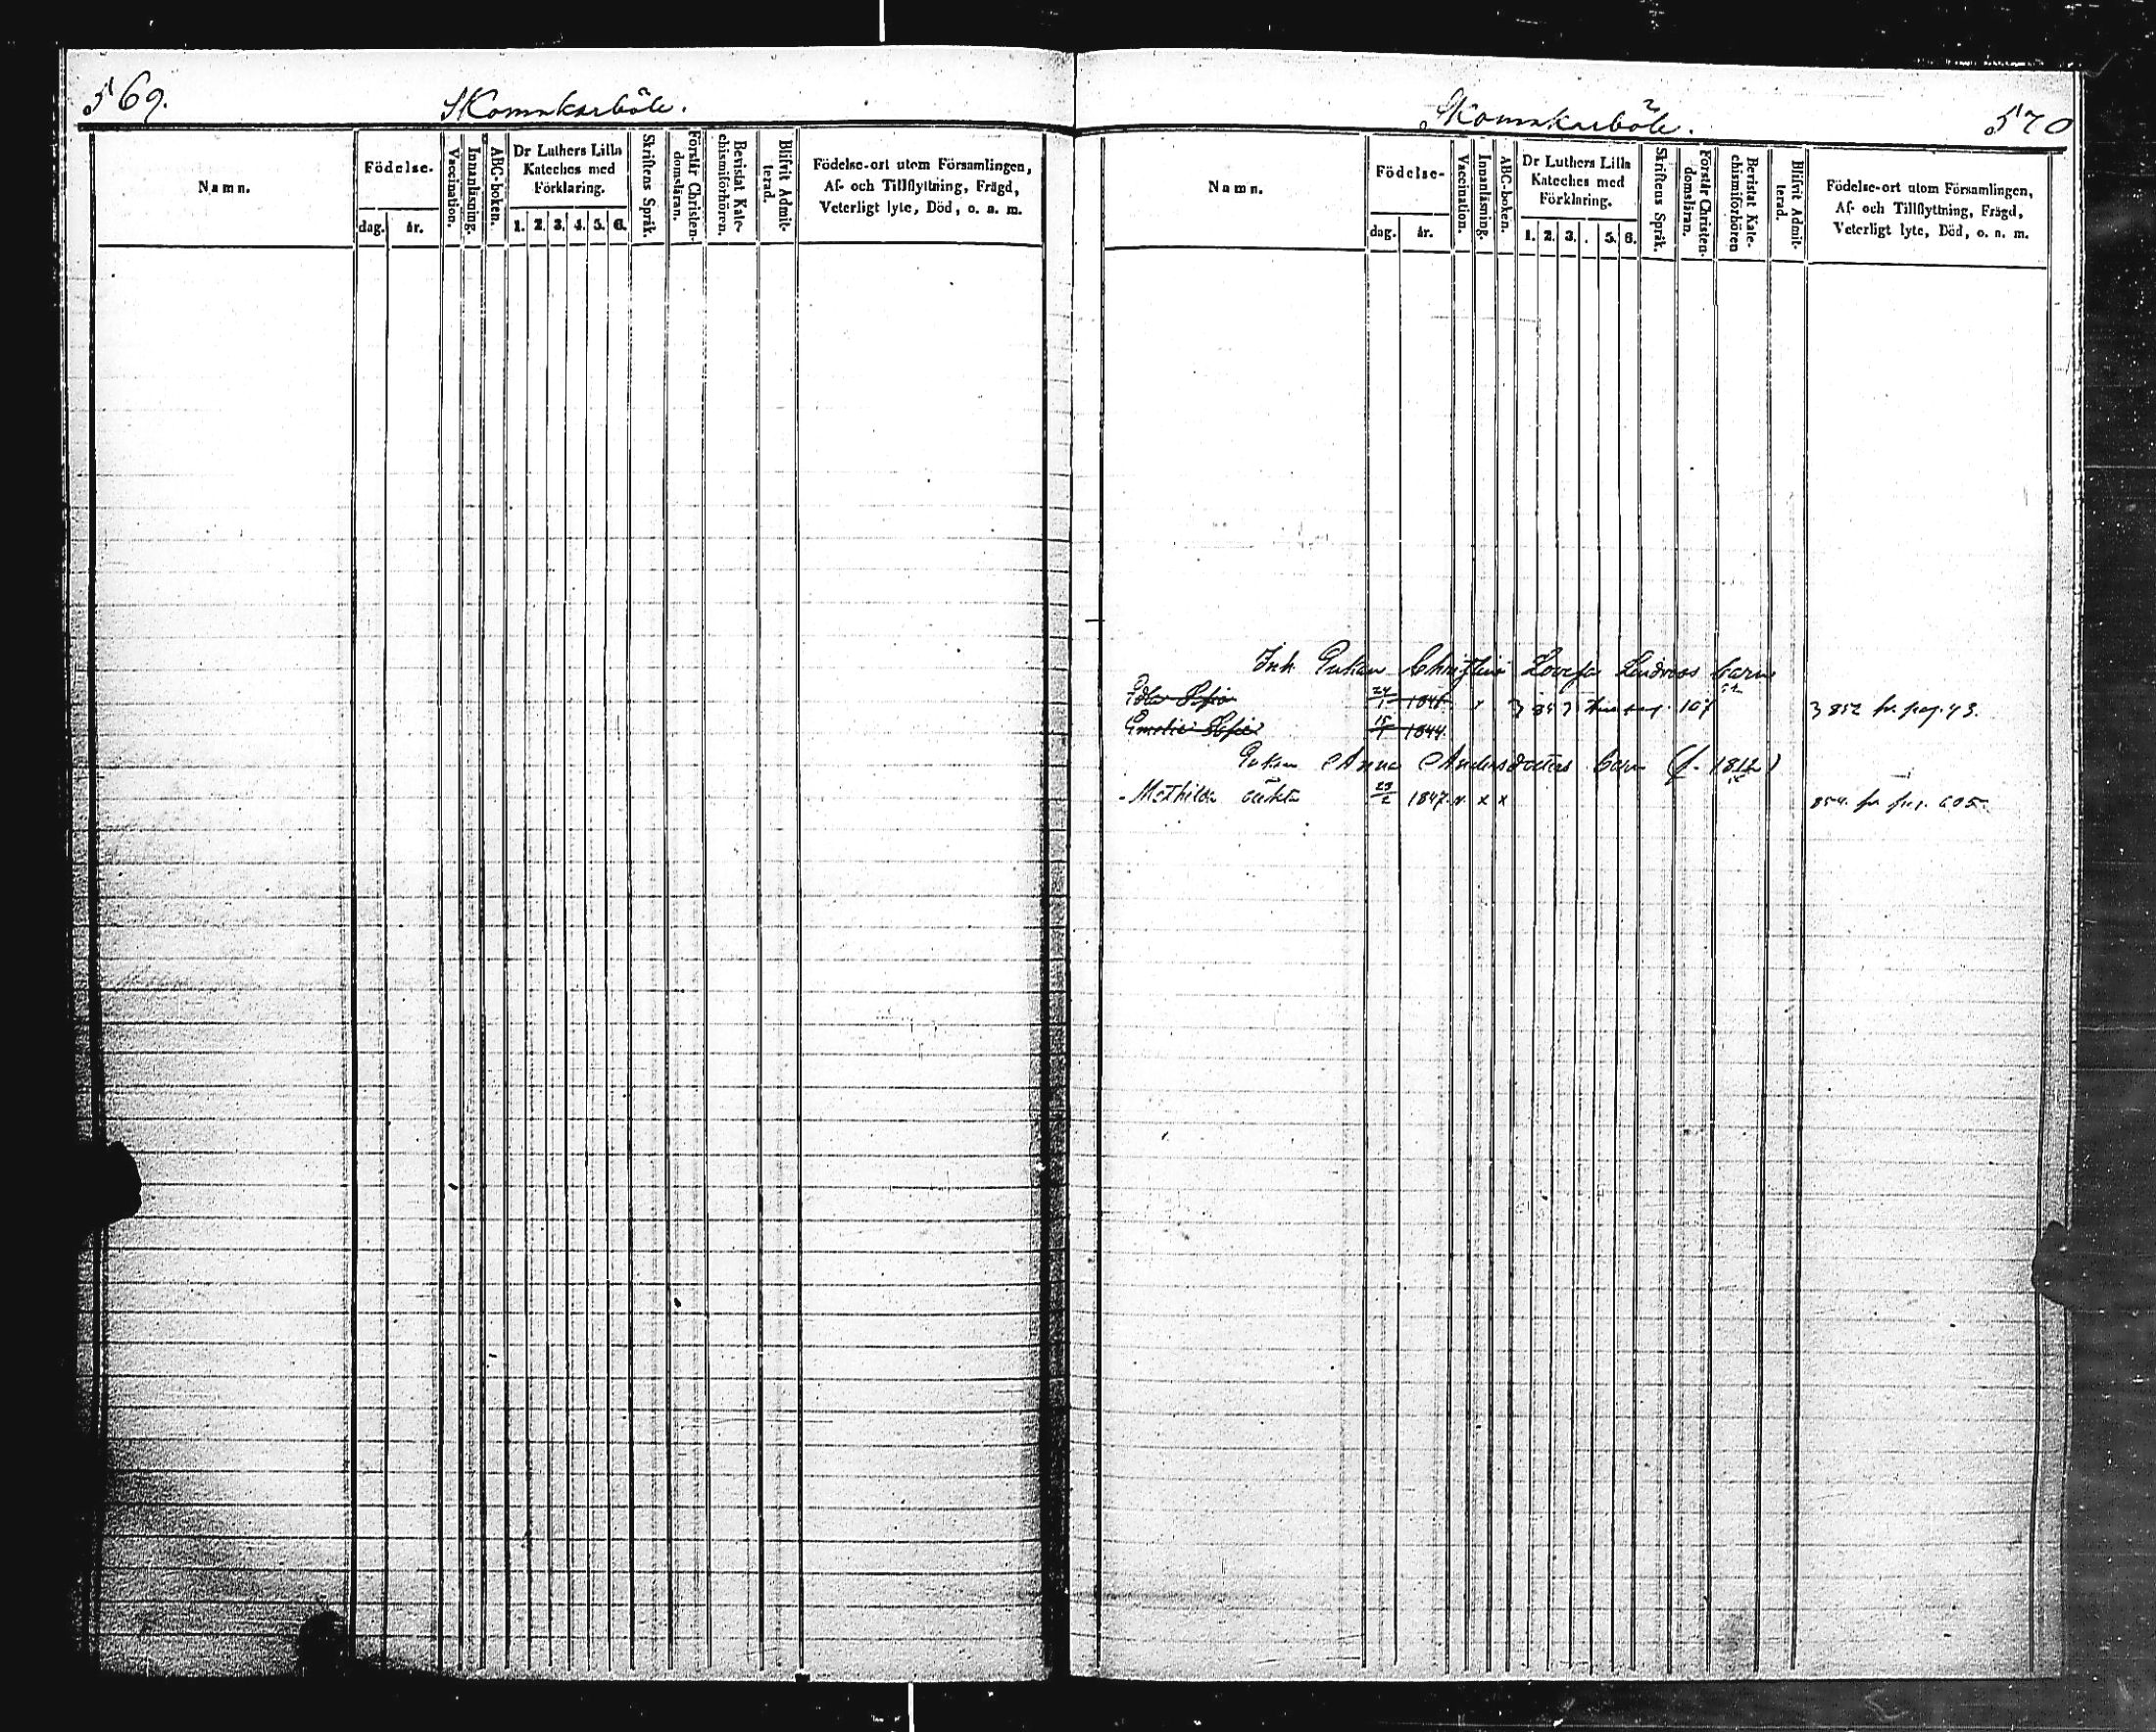 569.
Skomakarböle.
Namn.
Födelse-
dag.
år.
Vaccination.
Innanläsning.
ABC-boken.
Dr Luthers Lilla
Kateches med
Förklaring.
1. 2. 3. 4. 5. 6.
Skriftens Språk.
Förstår Christen-
domsläran.
Bevistat Kate-
chismiförhören.
Blifvit Admit-
terad.
Födelse-ort utom Församlingen,
Af- och Tillflyttning, Frägd,
Veterligt lyte, Död, o. a. m.
Skomakarböle.
570
Namn.
Födelse-
dag.
år.
Vaccination.
Innanläsning.
ABC-boken.
Dr Luthers Lilla
Kateches med
Förklaring.
1. 2. 3. . 5. 6.
Skriftens Språk.
Förstår Christen-
domsläran.
Bevistat Kate-
chismiförhören
Blifvit Admit-
terad.
Födelse-ort utom Församlingen,
Af- och Tillflyttning, Frägd,
Veterligt lyte, Död, o. a. m.
Inh Enkan Lovisa barn
Sofia 24/1 107 852 fr. pag. 43.
Sofia 15/1 1844.
Enkan Anna Andersdotters barn (f. 1812)
Mathilda 23/2 1847. x x x 854. fr pag. 605.